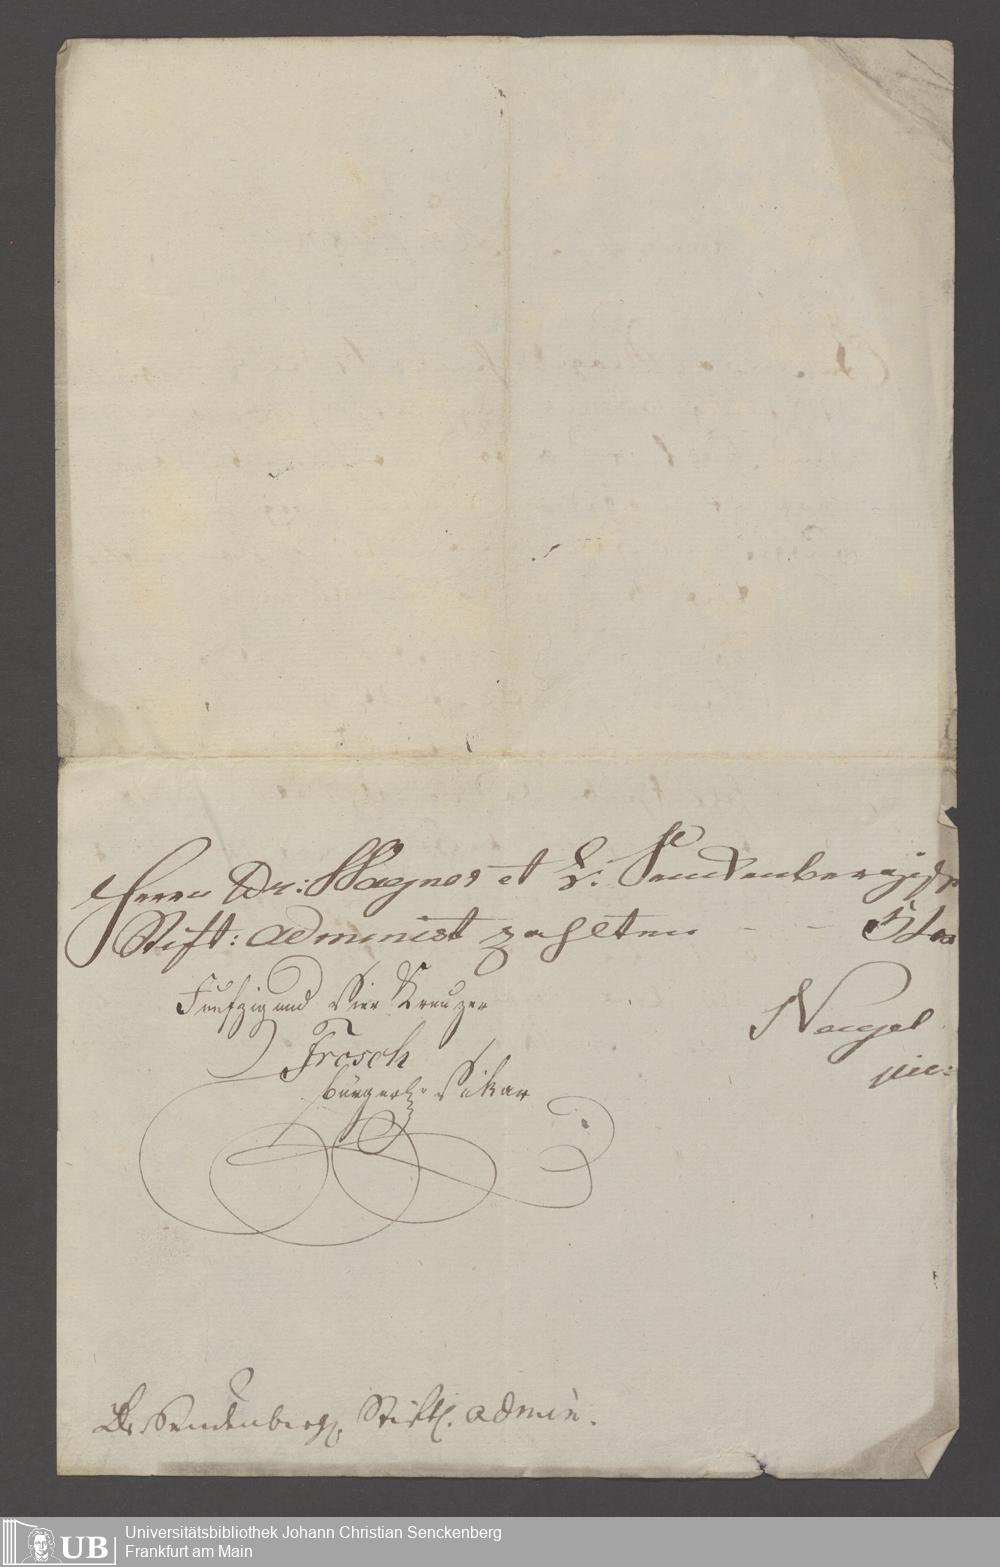 Herrn Dr: Wagner et D. Senckenbergische
Stift: administ zahlten - - 54 xr
Funfzig und Vier Kreuzer
Nagel
Frosch
bürgerl. Vikar
Dr. Senckenberg. Stiftl. admin.
Universitätsbibliothek Johann Christian Senckenberg
Frankfurt am Main
UB